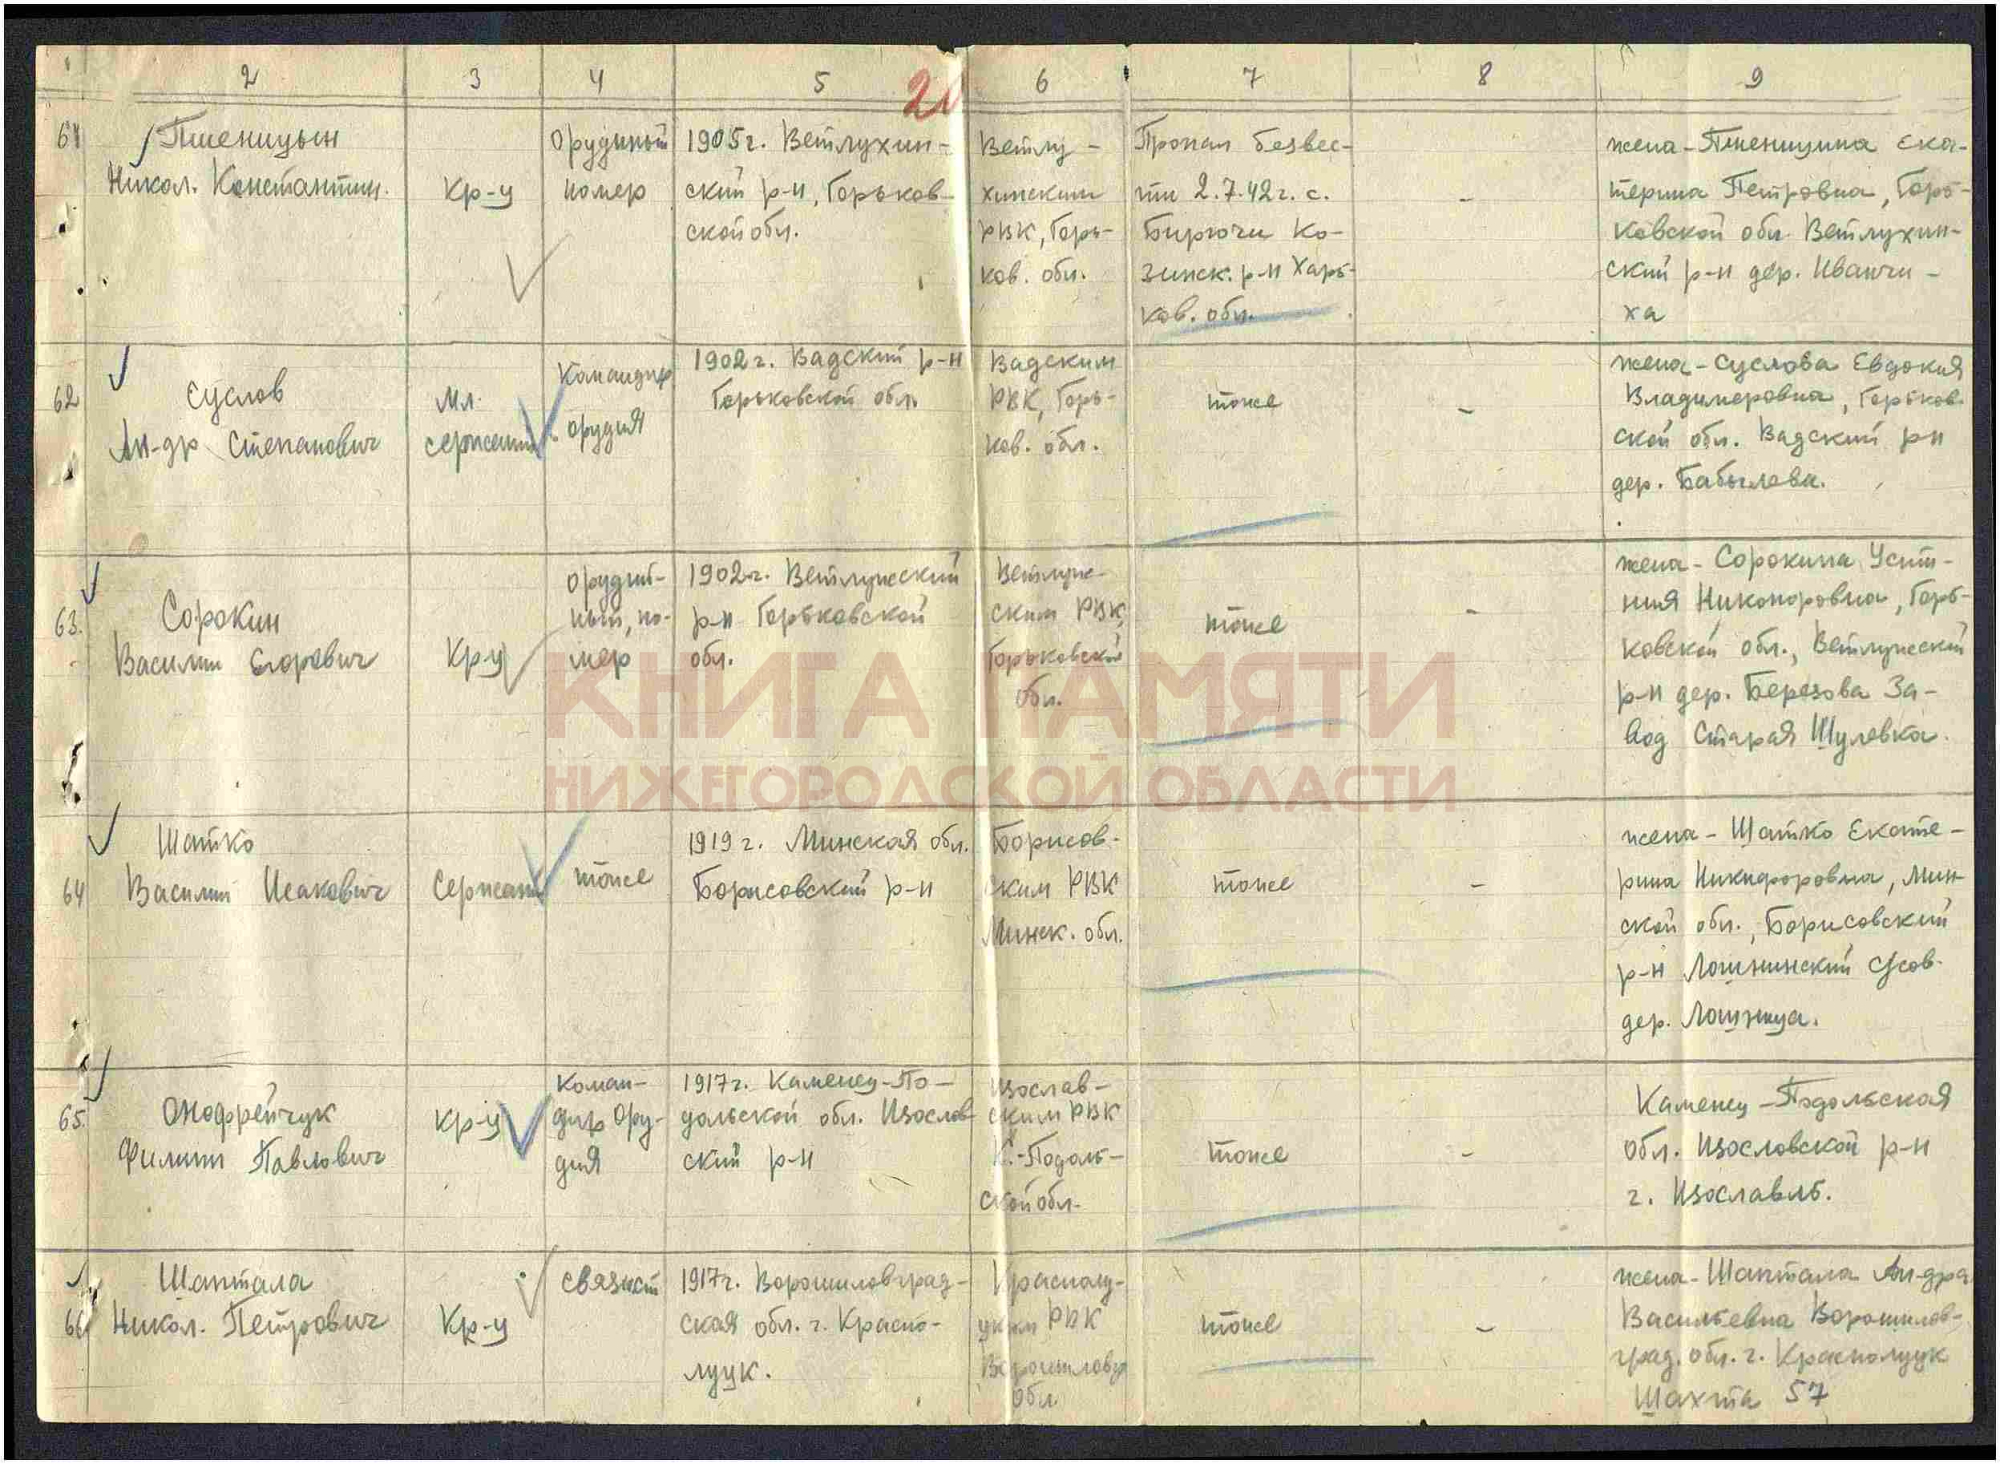 2 3 4 5 6 7 8 9
20
61
Пшеницын
Никол. Константин.
Кр-ц
Орудиный
номер
1905г. Ветлухин-
ский р-н, Горьков-
ской обл.
Ветлу-
хинским
РВК, Горь-
ков. обл.
Пропал безвес-
ти 2.7.42г. с.
Бирючи Ко-
зинск. р-н Харь-
ков. обл.
-
жена - Пшеницина Ека-
терина Петровна, Горь-
ковской обл. Ветлухин-
ский р-н дер. Иванчи-
ха
62
Суслов
Ал-др Степанович
Мл.
сержант
Командир
орудия
1902г. Вадский р-н
Горьковской обл.
Вадским
РВК, Горь-
ков. обл.
тоже
-
жена - Суслова Евдокия
Владимеровна, Горьков.
ской обл. Вадский р-н
дер. Бабылева.
63.
Сорокин
Василий Егорович
Кр-ц
Орудий-
ный, но-
мер
1902г. Ветлужский
р-н Горьковской
обл.
Ветлуж-
ским РВК,
Горьковской
обл.
тоже
-
жена - Сорокина Усти-
ния Никоноровна, Горь-
ковской обл., Ветлужский
р-н дер. Березова За-
вод Старая Шулевка.
КНИГА ПАМЯТИ
НИЖЕГОРОДСКОЙ ОБЛАСТИ
64
Шатко
Василий Исакович
Сержант
тоже
1919г. Минская обл.
Борисовский р-н
Борисов-
ским РВК
Минск. обл.
тоже
-
жена - Шатко Екате-
рина Никифоровна, Мин-
ской обл., Борисовский
р-н Лошнинский с/сов.
дер. Лошница.
65.
Онофрейчук
Филипп Павлович
Кр-ц
Коман-
дир Ору-
дия
1917г. Каменец-По-
дольской обл. Изослав-
ский р-н
Изослав-
ским РВК
К.-Подоль-
ской обл.
тоже
-
Каменец-Подольская
обл. Изословской р-н
г. Изославль.
66
Шаптала
Никол. Петрович
Кр-ц
связист
1917г. Ворошиловград-
ская обл. г. Красно-
луцк.
Краснолу-
цким РВК
Ворошиловгр
обл
тоже
-
жена - Шаптала Ал-дра
Васильевна Ворошилов-
град. обл. г. Краснолуцк
Шахта 57